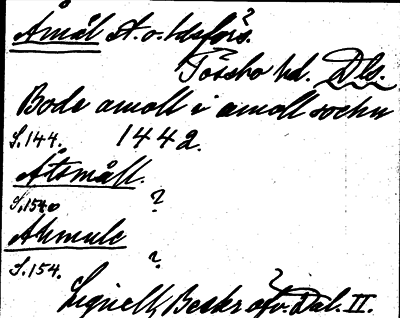 Åmål st. o. landsförs.
Tössbo hd. Dls.
Bode amoll i amoll sochn
S.144. 1442.
Åtsmåll.
S.154 ?
Ahmule
S.154. ?
Lignell, Beskr. öfv. Dal. II.